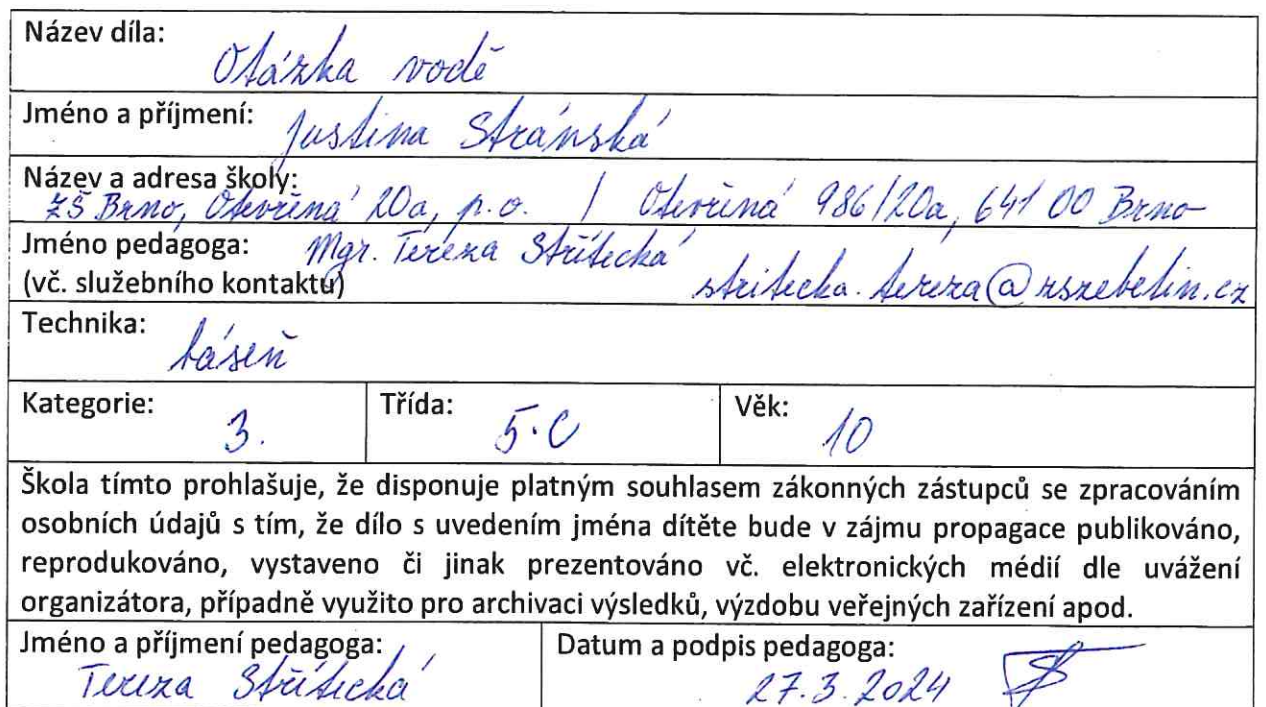 Název díla: Otázka vodě
Jméno a příjmení: Justina Stránská
Název a adresa školy:
ZŠ Brno, Otevřená 20a, p.o. / Otevřená 986/20a, 641 00 Brno
Jméno pedagoga: Mgr. Tereza Střítecká
(vč. služebního kontaktu) stritecka.tereza@zszebetin.cz
Technika: báseň
Kategorie: 3. Třída: 5.C Věk: 10
Škola tímto prohlašuje, že disponuje platným souhlasem zákonných zástupců se zpracováním
osobních údajů s tím, že dílo s uvedením jména dítěte bude v zájmu propagace publikováno,
reprodukováno, vystaveno či jinak prezentováno vč. elektronických médií dle uvážení
organizátora, případně využito pro archivaci výsledků, výzdobu veřejných zařízení apod.
Jméno a příjmení pedagoga: Datum a podpis pedagoga:
Tereza Střítecká 27.3.2024